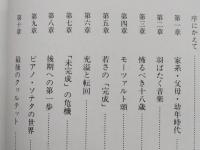 序にかえて
第一章 家系・父母・幼年時代
第二章 羽ばたく音楽
第三章 怖るべき十八歳
第四章 モーツァルト頌
第五章 若さの「完成」
第六章 充溢と転回
第七章 「未完成」の危機
第八章 後期への第一歩
第九章 ピアノ・ソナタの世界
第十章 最後のクヮルテット